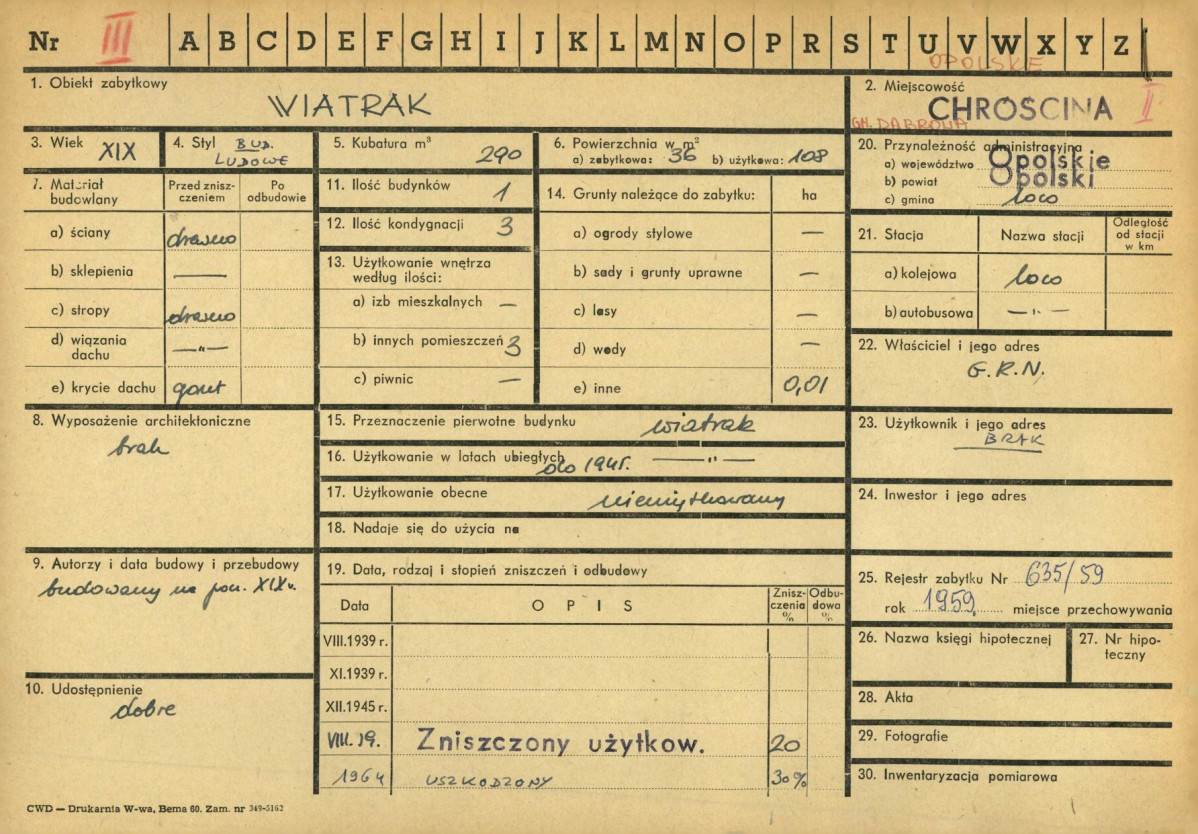 Nr III A B C D E F G H I J K L M N O P R S T U V W X Y Z
OPOLSKE
1. Obiekt zabytkowy
WIATRAK
2. Miejscowość
CHROSCINA II
GM. DĄBROWA
3. Wiek XIX
4. Styl BUD.
LUDOWE
5. Kubatura m³ 290
6. Powierzchnia w m²
a) zabytkowa: 36 b) użytkowa: 108
20. Przynależność administracyjna
a) województwo Opolskie
b) powiat Opolski
c) gmina loco
7. Materiał budowlany
Przed zniszczeniem
Po odbudowie
a) ściany drewno
b) sklepienia —
c) stropy drewno
d) wiązania dachu —"—
e) krycie dachu gont
11. Ilość budynków 1
12. Ilość kondygnacji 3
13. Użytkowanie wnętrza
według ilości:
a) izb mieszkalnych —
b) innych pomieszczeń 3
c) piwnic —
14. Grunty należące do zabytku: ha
a) ogrody stylowe —
b) sady i grunty uprawne —
c) lasy —
d) wody —
e) inne 0,01
21. Stacja
Nazwa stacji
Odległość
od stacji
w km
a) kolejowa loco
b) autobusowa —"—
22. Właściciel i jego adres
G.R.N.
8. Wyposażenie architektoniczne
brak
15. Przeznaczenie pierwotne budynku wiatrak
16. Użytkowanie w latach ubiegłych do 1945r. —"—
17. Użytkowanie obecne nieużytkowany
18. Nadaje się do użycia na
23. Użytkownik i jego adres
BRAK
24. Inwestor i jego adres
9. Autorzy i data budowy i przebudowy
budowany na pocz. XIX w.
10. Udostępnienie
dobre
19. Data, rodzaj i stopień zniszczeń i odbudowy
Data
OPIS
Zniszczenia %
Odbudowa %
VIII.1939 r.
XI.1939 r.
XII.1945 r.
VIII. 59. Zniszczony użytkow. 20
1964 USZKODZONY 30%
25. Rejestr zabytku Nr 635/59
rok 1959. miejsce przechowywania
26. Nazwa księgi hipotecznej
27. Nr hipoteczny
28. Akta
29. Fotografie
30. Inwentaryzacja pomiarowa
CWD — Drukarnia W-wa, Bema 60. Zam. nr 349-5162